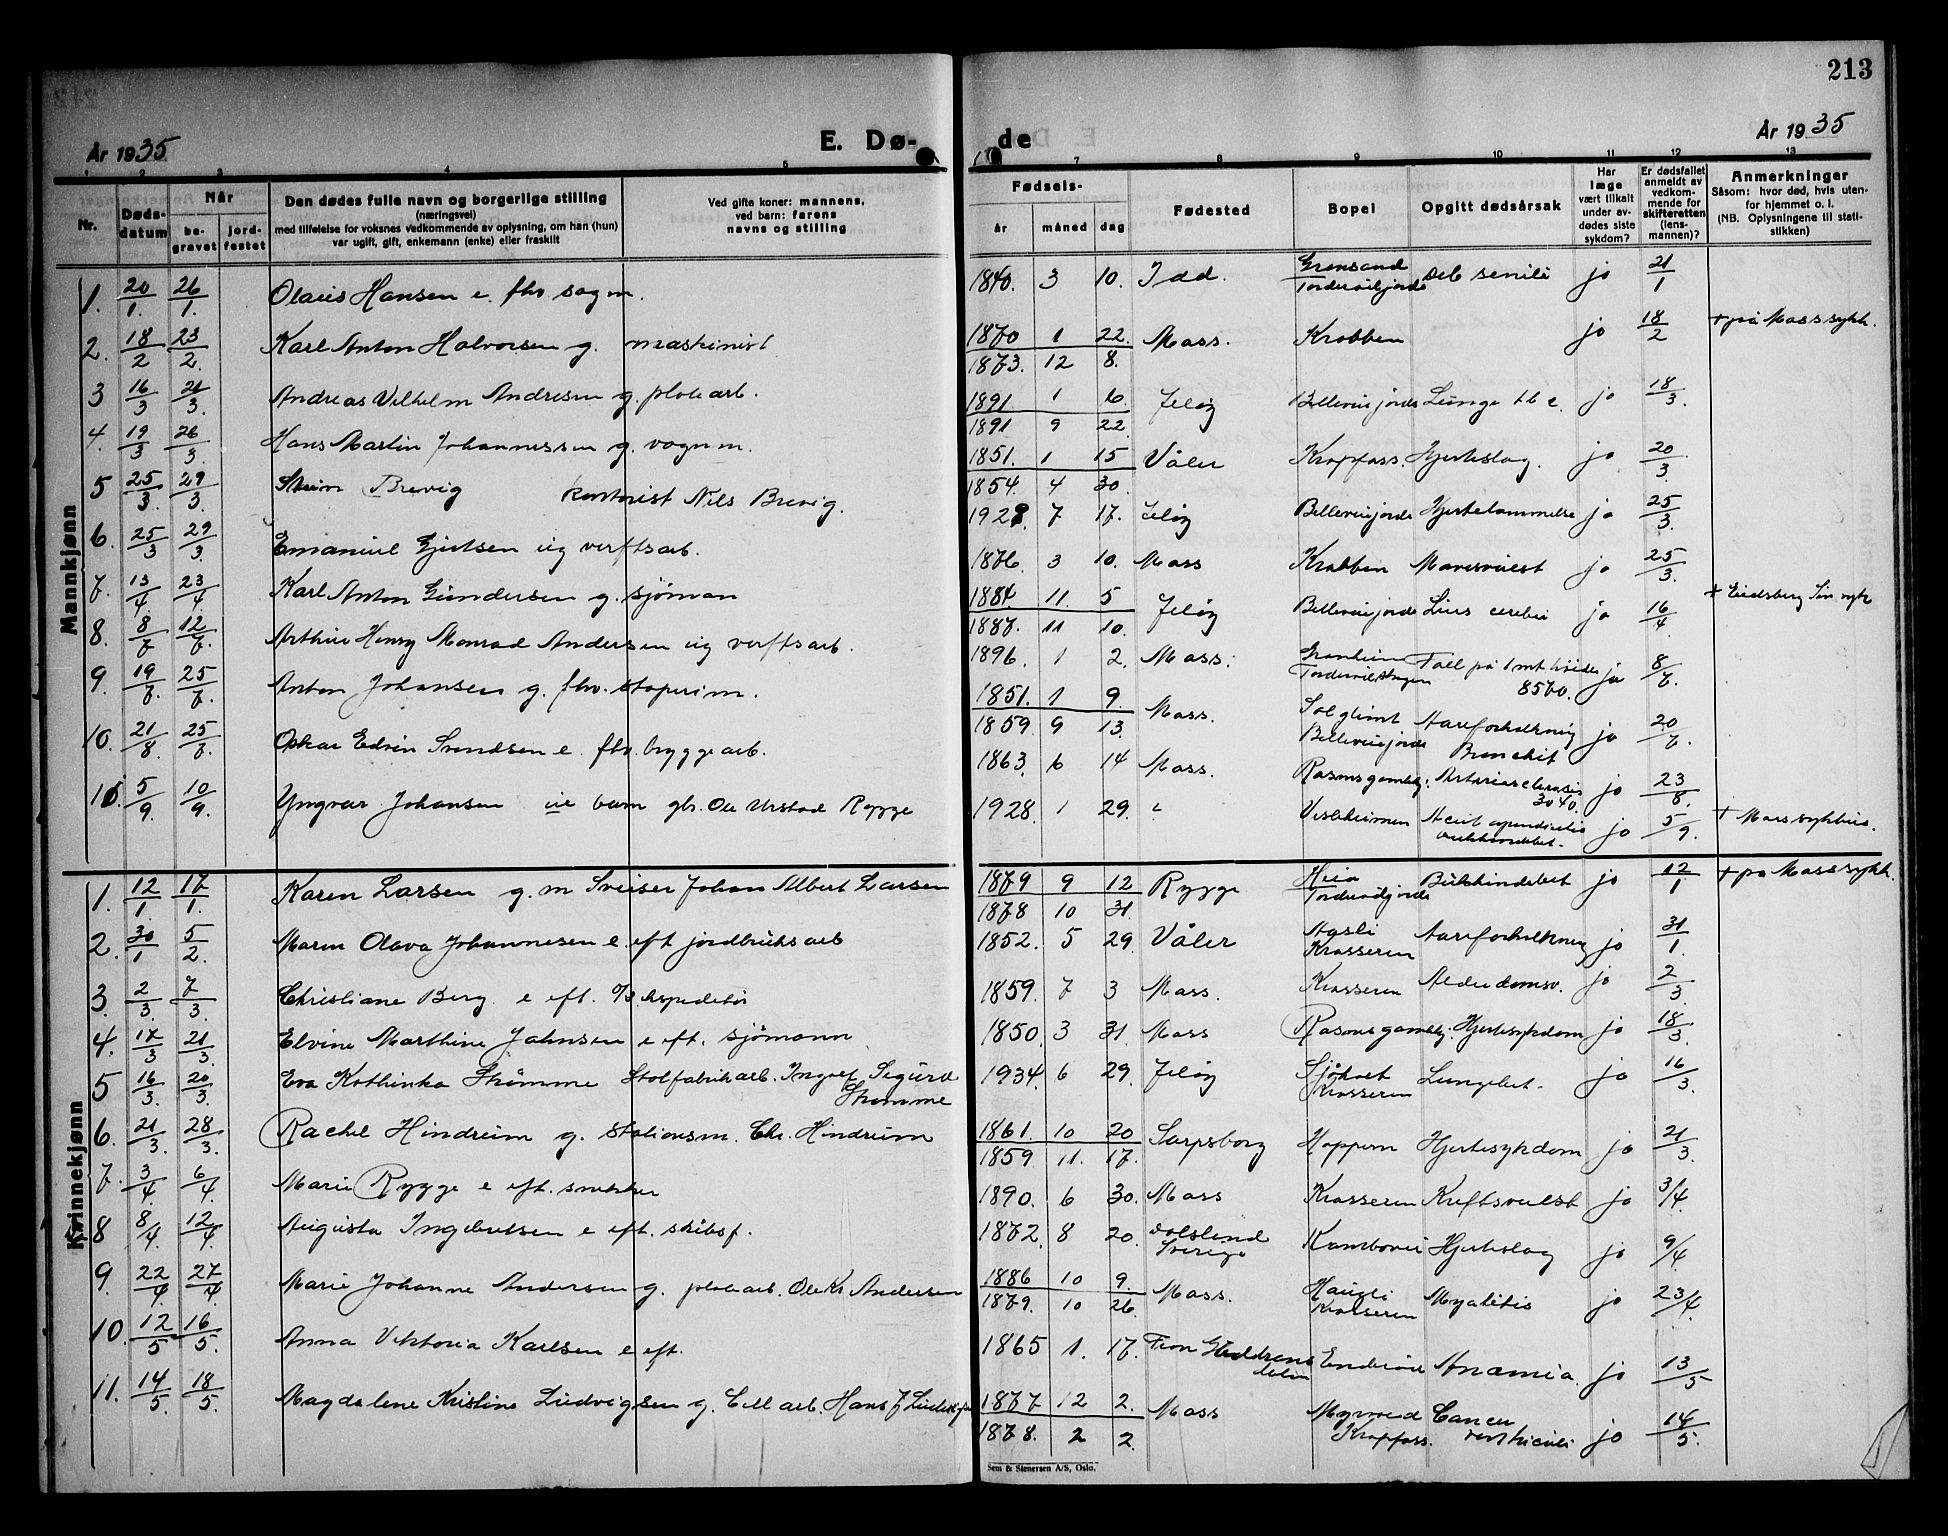 213
År 1935
E. Dø-
de
År 1935
1 2 3 4 5 7 8 9 10 11 12 13
Nr.
Døds-
datum
Når
be-
gravet
jord-
festet
Den dødes fulle navn og borgerlige stilling
(næringsvei)
med tilføielse for voksnes vedkommende av oplysning, om han (hun)
var ugift, gift, enkemann (enke) eller fraskilt
Ved gifte koner: mannens,
ved barn: farens
navns og stilling
Fødsels-
år måned dag
Fødested
Bopel
Opgitt dødsårsak
Har
læge
vært tilkalt
under av-
dødes siste
sykdom?
Er dødsfallet
anmeldt av
vedkom-
mende for
skifteretten
(lens-
mannen)?
Anmerkninger
Såsom: hvor død, hvis uten-
for hjemmet o. l.
(NB. Oplysningene til stati-
stikken)
Mannkjønn
1. 20/1. 26/1. Olaus Hansen e. fhv. sagm. 1840. 3 10. Idd. deb senili jo 21/1
2. 18/2 23/2. Karl Anton Halvorsen g. maskinist 1870 1 22. Moss. Krobben jo 18/2 + på Moss sykh.
1873. 12 8.
3 16/3 21/3. Andreas Vilhelm Andresen g. platearb. 1891 1 6. Jeløy Bellevuejordet Lunge tbc. jo 18/3.
1891 9 22.
4. 19/3 26/3. Hans Martin Johannessen g. vognm. 1851. 1 15 Våler Kropfoss. Hjerteslag. jo 20/3
1854. 4 30.
5 25/3. 29/3. Brevig kontorist Nils Brevig. 1928. 7 17. Jeløy Bellevuejordet Hjertelammelse jo 25/3.
6. 25/3 29/3. Emanuel Gjertsen ug verftsarb. 1876. 3 10. Moss Krabben Mavesvulst jo 25/3.
7. 13/4. 23/4 Karl Anton Gundersen g. sjømann 1884. 11. 5 Jeløy Bellevuejordet Lues cerebri jo 16/4. + Eidsberg Sin.syk
1887. 11 10.
8. 8/7 12/7. Arthur Henry Monrad Andersen ug verftsarb. 1896. 1 2. Moss. Granheim Fall på 1 mt høide jo 8/7.
8570.
9. 19/7. 25/7. Anton Johansen g. fhv. støperim. 1851. 1 9. Moss. Solglimt Aareforkalkning jo 20/7.
1859 9 13. Bellevuejordet Bronchit
10. 21/8. 25/8. Oskar Edvin Svendsen e. fhv. bryggearb. 1863. 6 14 Moss. Arteriosclerosis jo 23/8.
3040.
11. 5/9. 10/9. Yngvar Johansen ue barn gbr. Ole Urstad Rygge 1928. 1 29. " jo 5/9. + Moss sykehus.
Kvinnekjønn
1. 12/1. 17/1. Karen Larsen g. m Sveiser Johan Albert Larsen 1879 9 12 Rygge jo 12/1. + på Moss sykh.
1878 10 31.
2. 30/1 5/2. Maren Olava Johannesen e. eft jordbruksarb 1852. 5 29. Våler Aasli Aareforkalkning jo 31/1.
Krosseren
3. 2/3. 7/3. Christiane Berg e eft. 1859. 7 3 Moss. Krosseren Alderdomssv. jo 2/3.
4. 17/3 21/3. Elvine Marthine Jahnsen e eft. sjømann 1850. 3 31. Moss Hjertesykdom jo 18/3.
5 16/3. 20/3. Eva Kathinka Strømme Stolfabrikarb. Ingolf Sigurd 1934. 6 29. Jeløy Lungebet. jo 16/3.
Strømme Krosseren
6. 21/3. 28/3. Rachel Hindrum g. Stationsm. Chr. Hindrum 1861. 10 20 Sarpsborg Koppern Hjertesykdom jo 21/3.
1859. 11. 17.
7. 3/4. 6/4 Marie Rygge e eft. snekker 1890. 6 30. Moss Krosseren Kreftsvulst jo 3/4.
8 8/4 12/4 Augusta Ingebretsen e eft. skibsf. 1872. 8 20. Dalsland Kambovei Hjerteslag jo 9/4.
Sverige
9. 22/4. 27/4 Marie Johanne Andersen g. platearb. Ole Kr. Andersen 1886 10 9. Moss. Haugli Myelitis jo 23/4
1879. 10 26. Krosseren
10. 12/5 16/5. Anna Viktoria Karlsen e eft. 1865 1. 17. Anæmia. jo 13/5
11. 14/5. 18/5. Magdalene Kristine Ludvigsen g. Cell arb. Hans J Ludvigsen 1877 12 2. Moss Cancer jo 14/5.
1878. 2 2. Kropfoss. ventriculi
Sem & Stenersen A/S, Oslo.